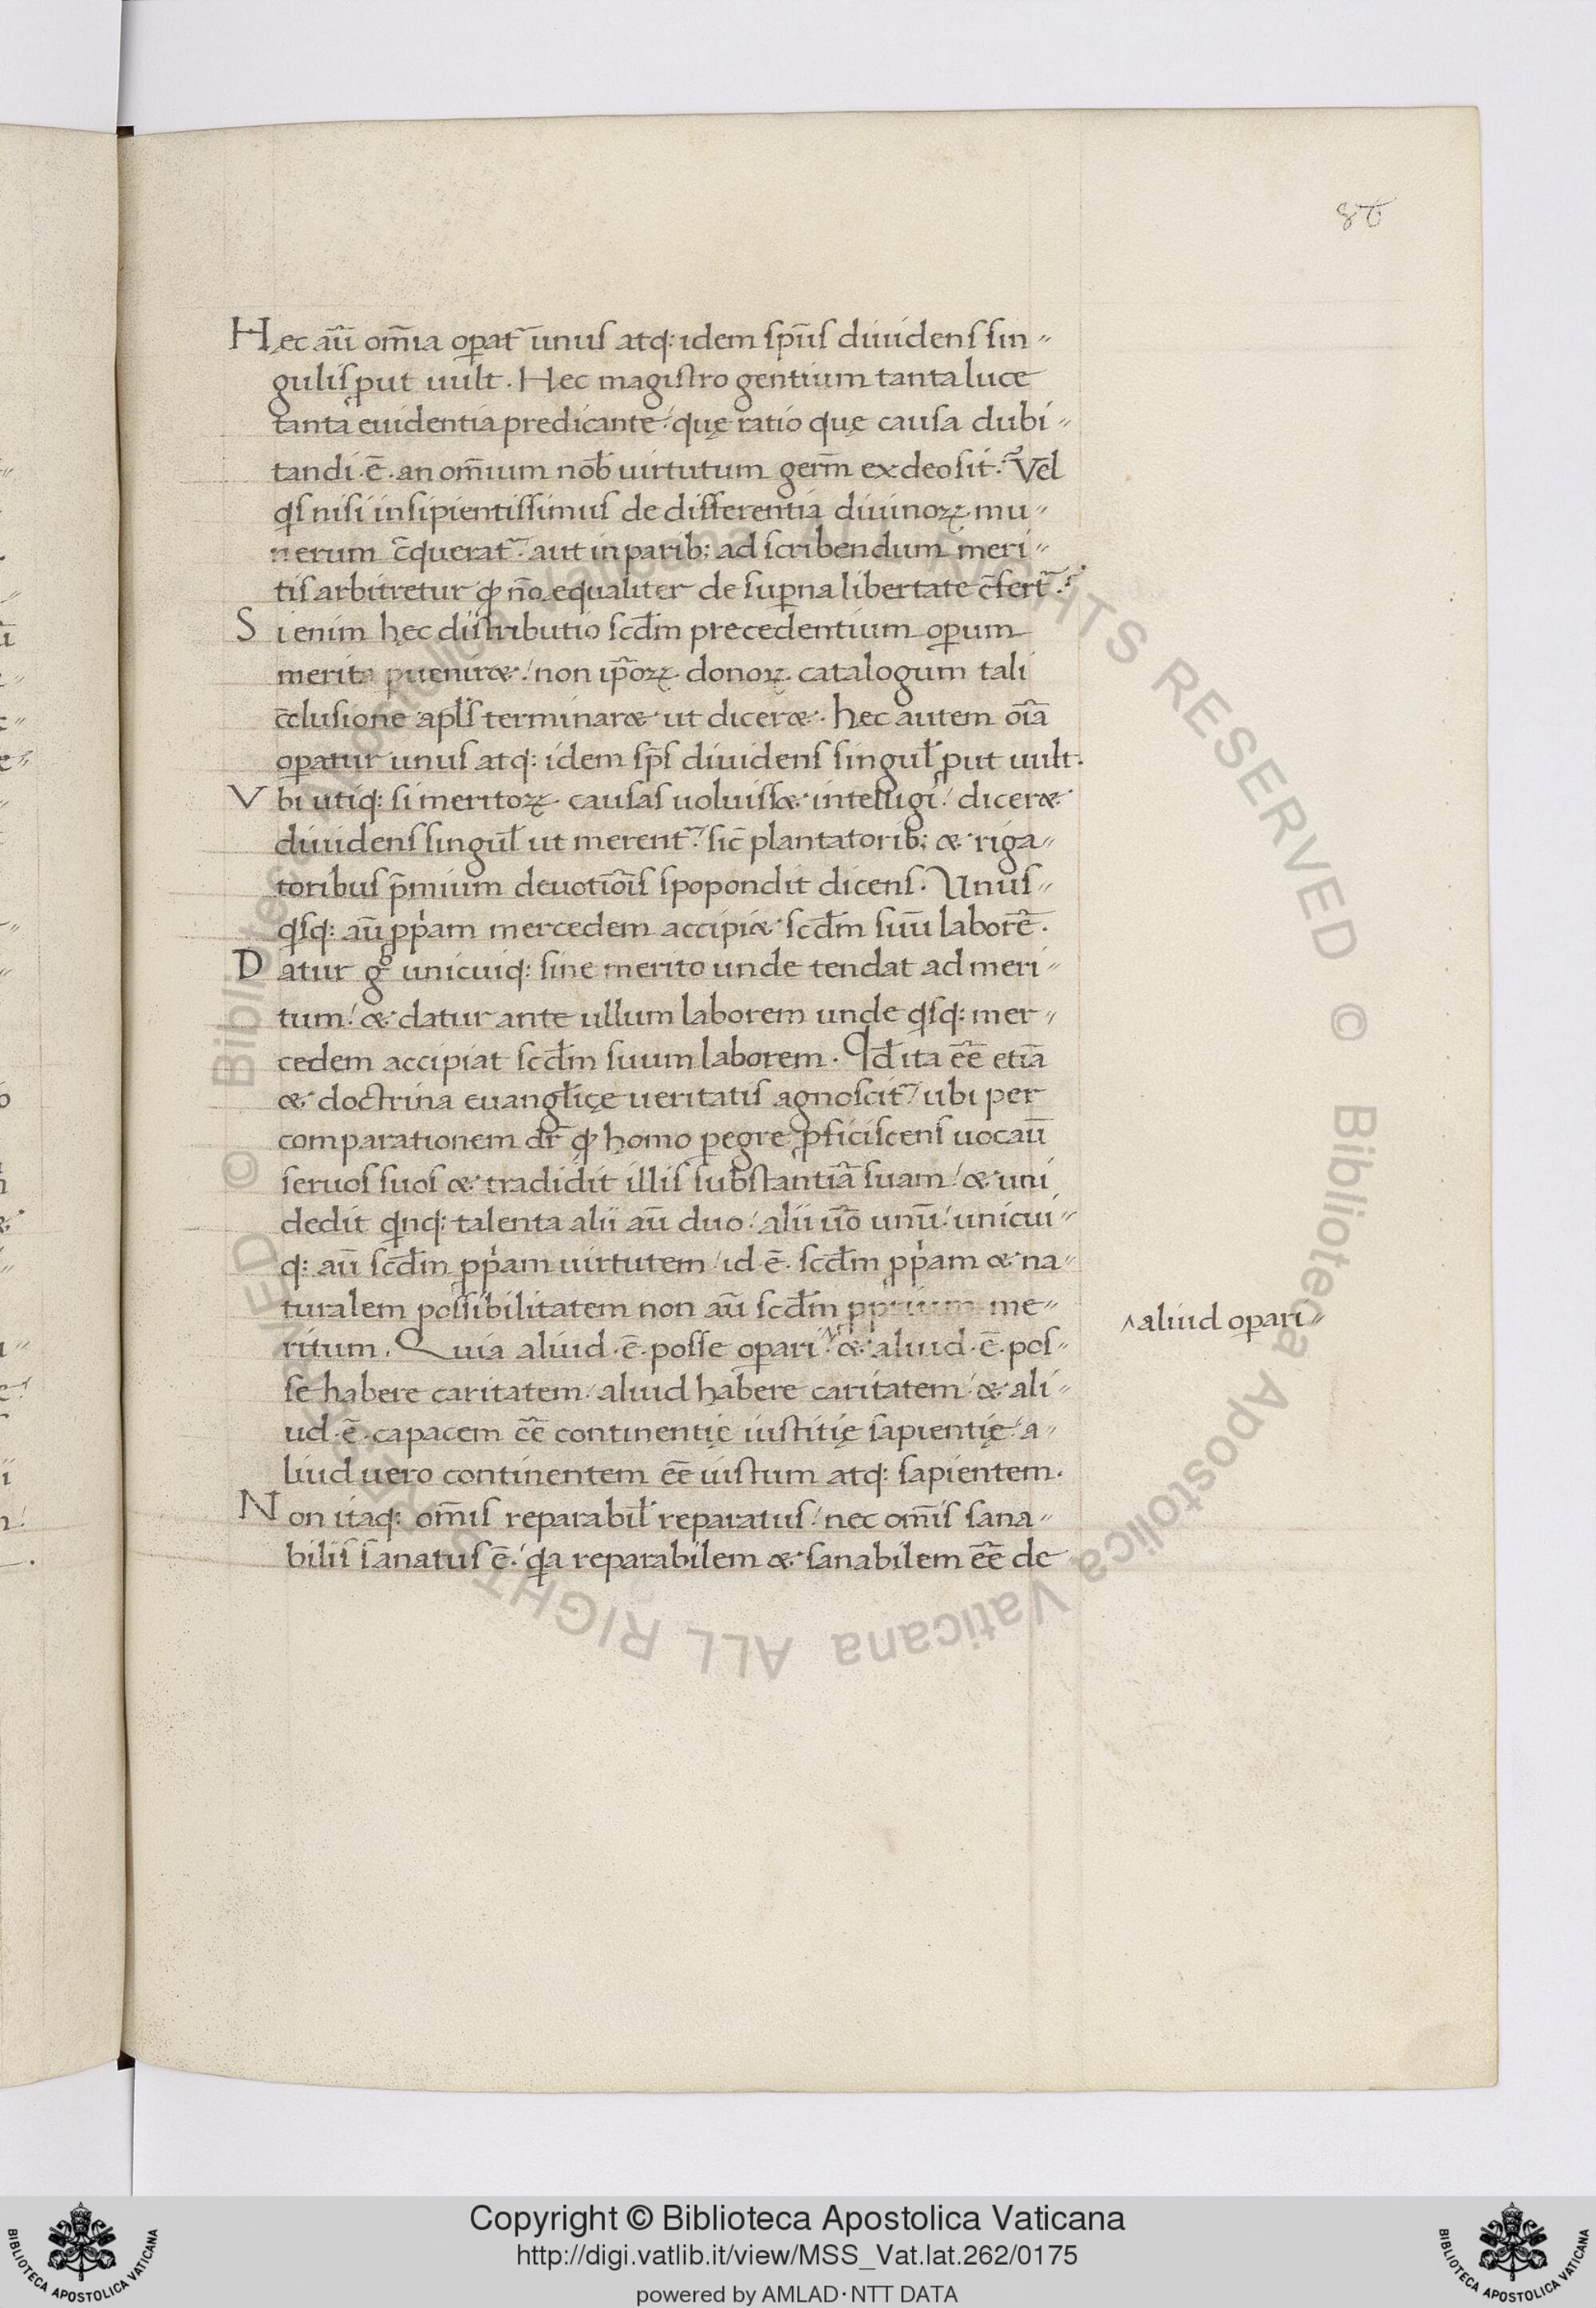 86
Hec aũ om̃ia op̱at᷑ unus atq: idem sp̃us diuidens sin〃
gulis ꝓut uult. Hec magistro gentium tanta luce
tanta euidentia predicante / quę ratio quę causa dubi〃
tandi ·ẽ· an om̃ium nob̃ uirtutum germ̃ ex deo sit. Vel
q̃s nisi insipientissimus de differentia diuinoꝝ mu〃
nerum c̃querat᷑. aut in parib; ad scribendum meri〃
tis arbitretur ꝙ nõ equaliter de sup̱na libertate c̃fert᷑.
Si enim hęc distributio scd̃m precedentium op̱um
merita ꝓueniret / non ip̃oꝝ donoꝝ catalogum tali
c̃clusione apl̃s terminaret ut diceret. hec autem oĩa
op̱atur unus atq: idem sp̃s diuidens singul̃ ꝓut uult.
Vbi utiq: si meritoꝝ causas uoluisset intelligi / diceret
diuidens singul̃ ut merent᷑. sic̃ plantatorib; & riga〃
toribus p̃mium deuotiõis spopondit dicens. Unus〃
q̃sq: aũ ppͥam mercedem accipiet scd̃m suũ laborẽ.
Datur gͦ unicuiq: sine merito unde tendat ad meri〃
tum / & datur ante ullum laborem unde q̃sq: mer〃
cedem accipiat scd̃m suum laborem. Qd̃ ita eẽ etiã
& doctrina euangl̃icę ueritatis agnoscit᷑ / ubi per
comparationem dr̃ ꝙ homo p̱egre ꝓficiscens uocaũ
seruos suos & tradidit illis substantiã suam / & uni
dedit q̃nq: talenta alii aũ duo / alii ũo unũ / unicui〃
q: aũ scd̃m ppͥam uirtutem / id ·ẽ· scd̃m ppͥam & na〃
turalem possibilitatem non aũ scd̃m pprium me〃
ritum. Quia aliud ·ẽ· posse op̱ari ^ & aliud ·ẽ· pos〃
^aliud op̱ari〃
se habere caritatem / aliud habere caritatem / & ali〃
ud ·ẽ· capacem eẽ continentię iustitię sapientię / a〃
liud uero continentem eẽ iustum atq: sapientem.
Non itaq: om̃is reparabil̃ reparatus / nec om̃is sana〃
bilis sanatus ẽ / q̃a reparabilem & sanabilem eẽ de
© Biblioteca Apostolica Vaticana ALL RIGHTS RESERVED © Biblioteca Apostolica Vaticana ALL RIGHTS RESERVED
Copyright © Biblioteca Apostolica Vaticana
http://digi.vatlib.it/view/MSS_Vat.lat.262/0175
powered by AMLAD·NTT DATA
BIBLIOTECA APOSTOLICA VATICANA
BIBLIOTECA APOSTOLICA VATICANA